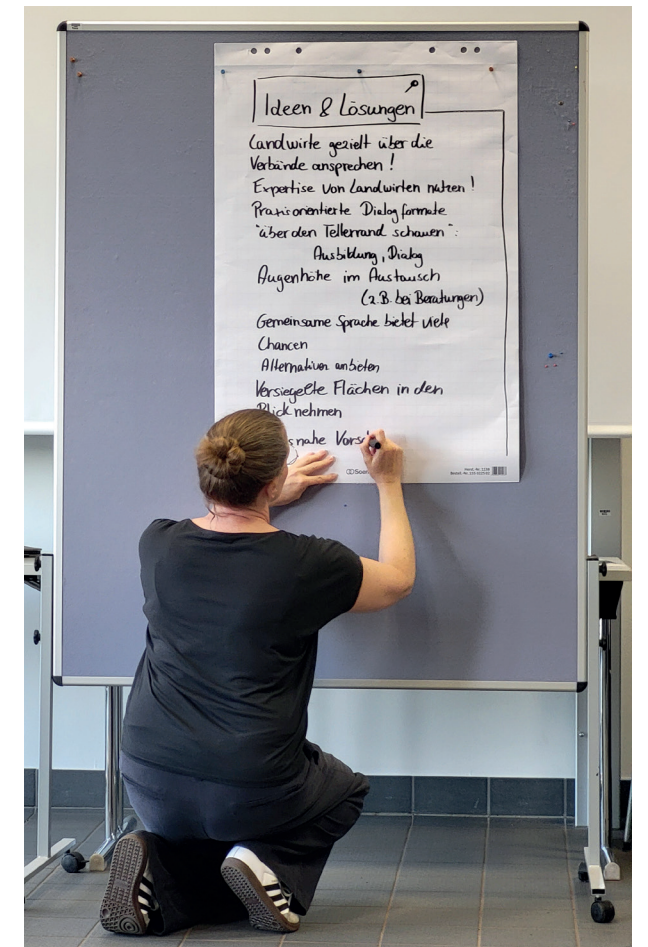 Ideen & Lösungen
Landwirte gezielt über die
Verbände ansprechen!
Expertise von Landwirten nutzen!
Praxisorientierte Dialogformate
"über den Tellerrand schauen":
Ausbildung, Dialog
Augenhöhe im Austausch
(z.B. bei Beratungen)
Gemeinsame Sprache bietet viele
Chancen
Alternativen anbieten
Versiegelte Flächen in den
Blick nehmen
nahe